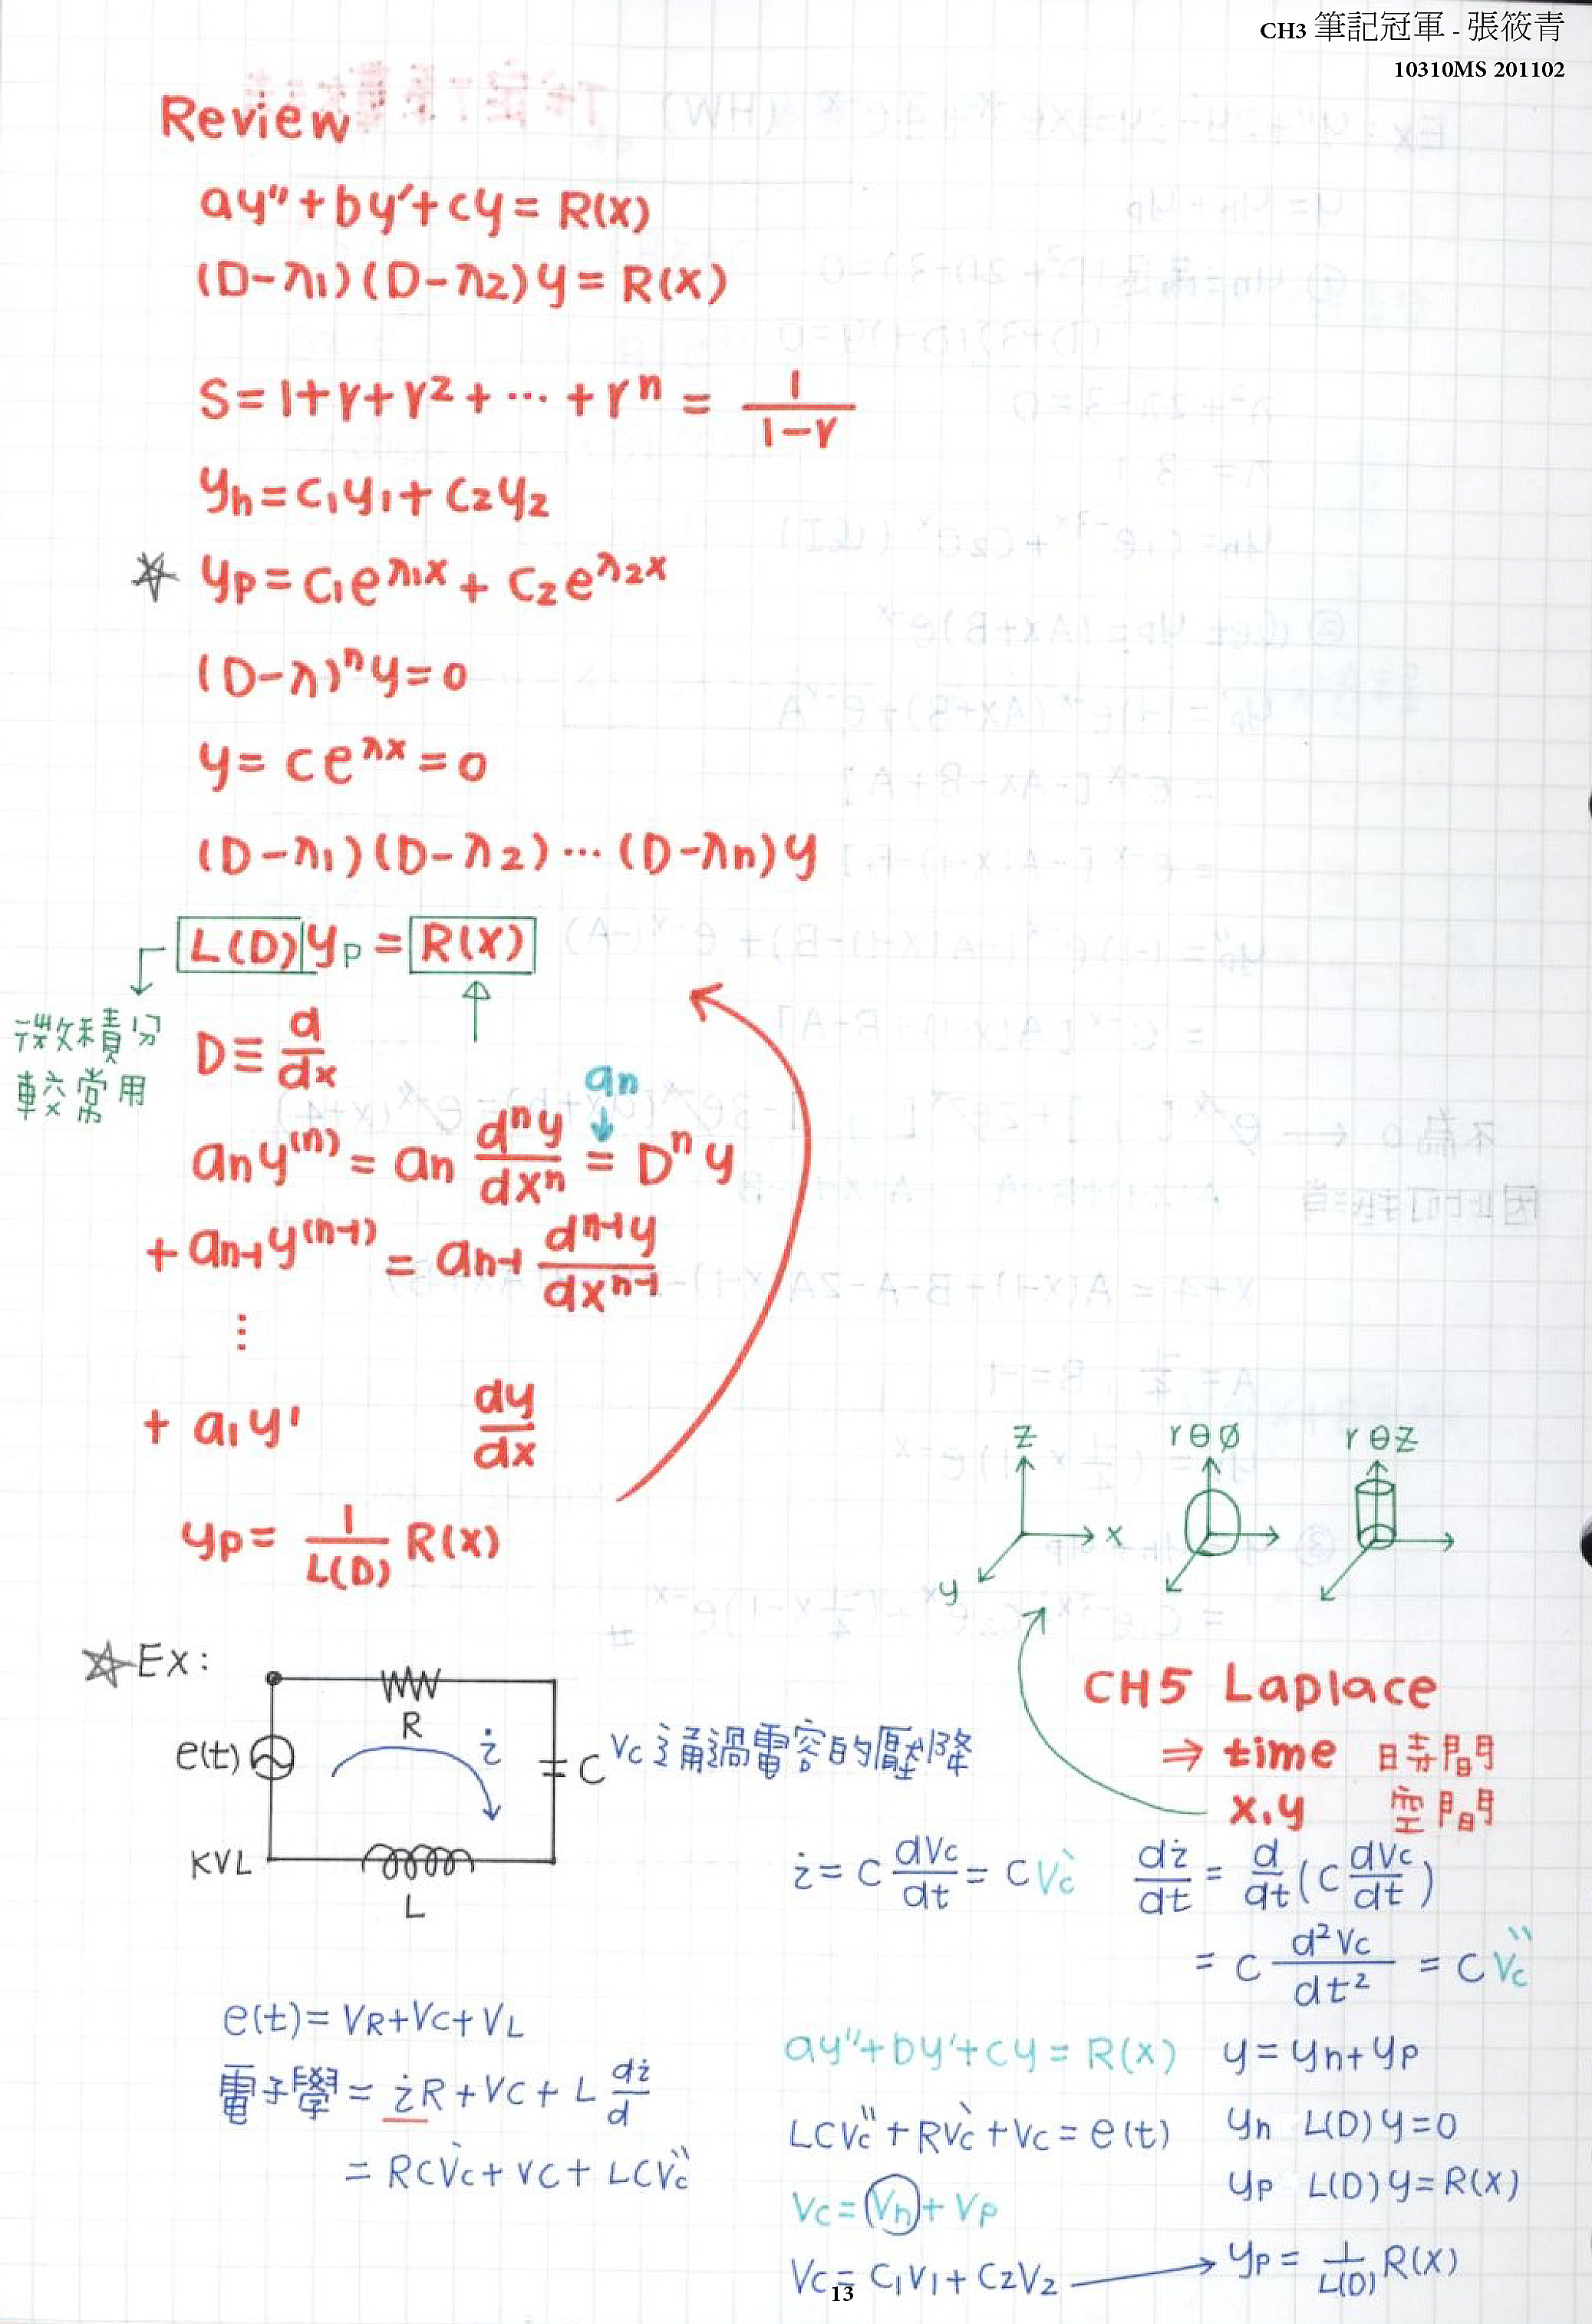 CH3 筆記冠軍 - 張筱青
10310MS 201102
Review
ay″+by′+cy=R(x)
(D-λ1)(D-λ2)y=R(x)
S=1+r+r²+⋯+rⁿ= 1/(1-r)
yh=c1y1+c2y2
☆ yp=c1e^λ1x + c2e^λ2x
(D-λ)ⁿy=0
y=ce^λx=0
(D-λ1)(D-λ2)⋯(D-λn)y
L(D)yp=R(x)
微積分
較常用
D≡ d/dx
an
any^(n) = an dⁿy/dxⁿ = Dⁿy
+ an-1y^(n-1) = an-1 d^n-1y/dx^n-1
⋮
+ a1y' dy/dx
yp= 1/L(D) R(x)
z x y
rθφ
rθz
CH5 Laplace
⇒ time 時間
x,y 空間
☆Ex:
R
e(t) i C Vc 通過電容的壓降
KVL
L
i=C dVc/dt = CVc` di/dt = d/dt(C dVc/dt)
= C d²Vc/dt² = CVc``
e(t)=VR+VC+VL
電子學=iR+VC+L di/d
=RCVc`+VC+LCVc``
ay″+by′+cy=R(x) y=yh+yp
LCVc``+RVc`+Vc=e(t) yh L(D)y=0
yp L(D)y=R(x)
Vc=Vh+Vp
Vc=C1V1+C2V2 → yp= 1/L(D) R(x)
13